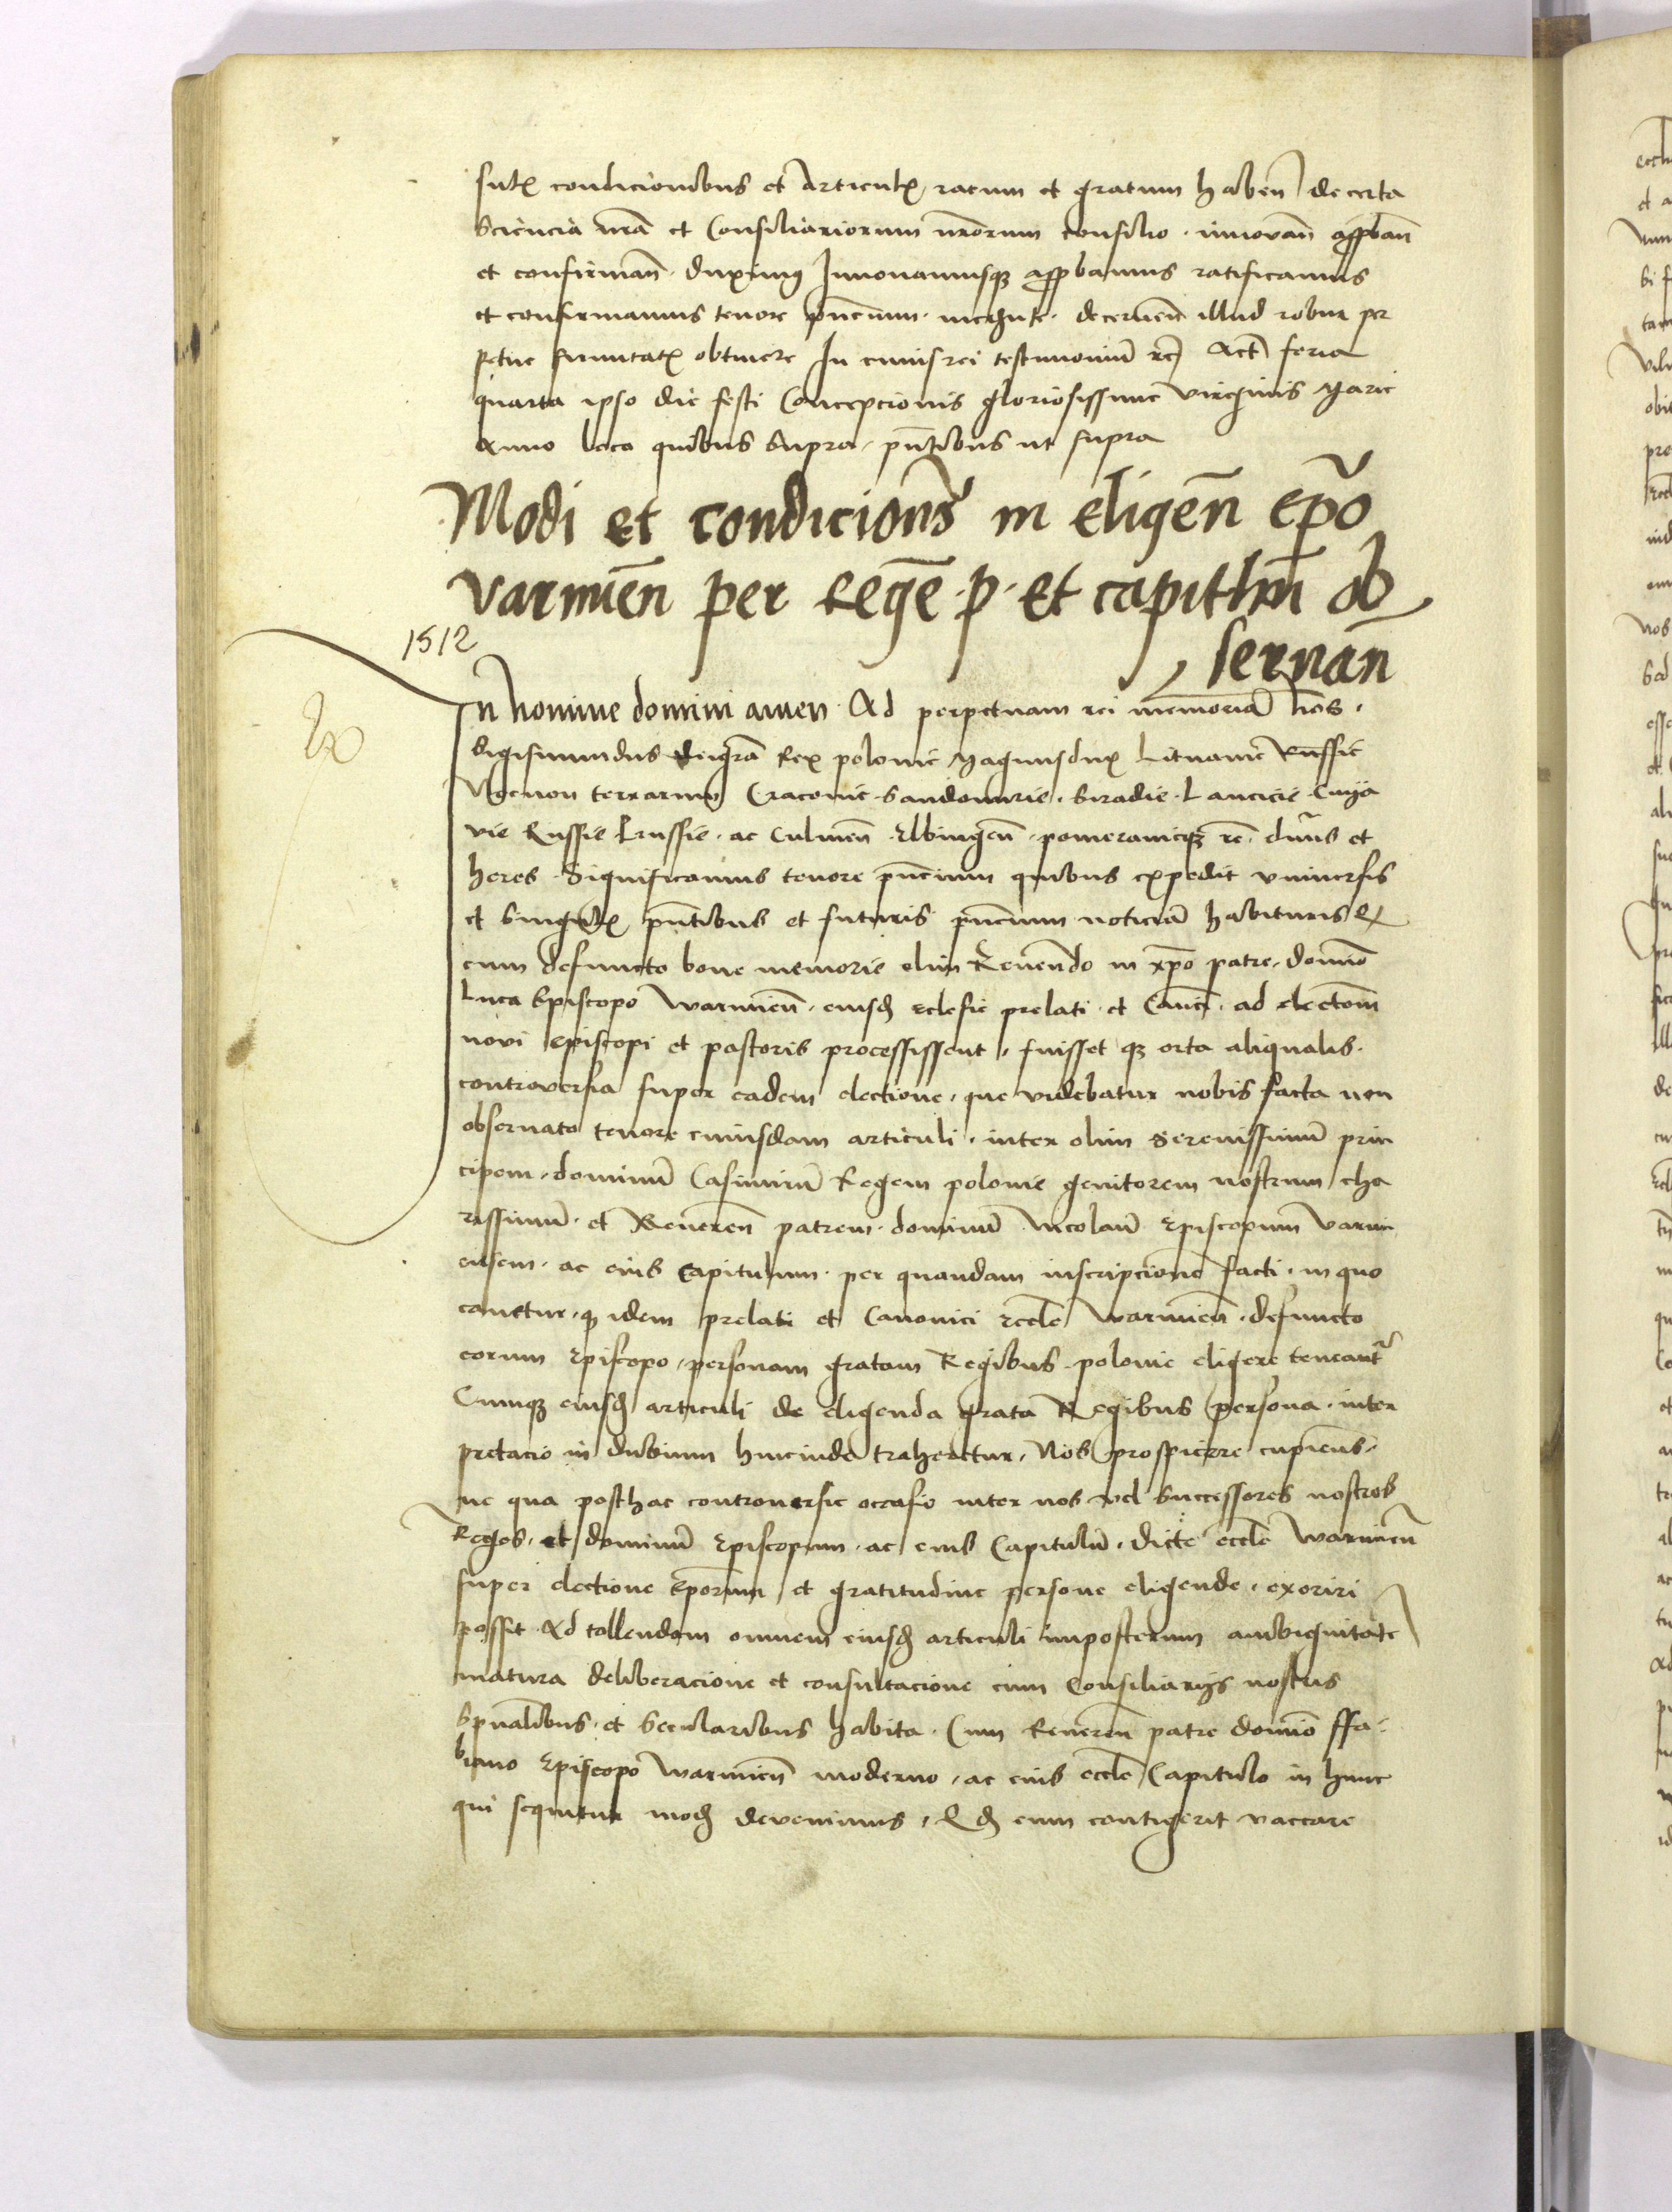 sulꝭ condicionibus et Articulꝭ ratum et gratum haben̄ de certa
Sciencia nr̄a et Consiliariorum nr̄orum consilio innovan̄ apꝓban̄
et confirman̄ duximꝯ Innovamusqꝫ apꝓbamus ratificamus
et confirmamus tenore pn̄cium decernen̄ illud robur per
petue firmitatꝭ obtinere In cuius rei testimoniū rē Act̄ feria
quarta ipso die festi Concepcionis gloriosissime virginis Marie
Anno loco quibus supra pn̄tibus ut supra
Modi et condicion̄s in eligen̄ ep̄o
varmien̄ per Regē p. et capitl̄m ob
servan̄
1512
In Nomine domini amen Ad perpetuam rei memoriā Nos
Sigismundus dei gr̄a Rex polonie Magnusdux Lituanie Russie
Necnon terrarum Cracovie Sandomirie Siradie Lancicie Cuya
vie Russie Prussie ac Culmen̄ Elbingen̄ pomeranieqꝫ rē dn̄us et
heres Significamus tenore pn̄cium quibus expedit universis
et singulꝭ pn̄tibus et futuris pn̄cium noticiā habituris
cum defuncto bone memorie olim Reverendo in xp̄o patre domīo
Luca Episcopo Warmien̄ eiusꝺ eclesie prelati et Can̄ci ad electōm
novi episcopi et pastoris processissent fuisset qꝫ orta aliqualis
controversia super eadem electione que videbatur nobis facta non
observato tenore cuiusdam articuli inter olim Serenissimū prin
cipem dominū Casimirū Regem polonie genitorem nostrum cha
rissimū et Reveren̄ patrem dominū Nicolaū Episcopum Varmi
ensem ac eius Capitulum per quandam inscripcionē facti in quo
cavetur qꝫ idem prelati et Canonici eccl̄e Warmien̄ defuncto
eorum Episcopo personam gratam Regibus polonie eligere teneant̄r
Cumqꝫ eiusꝺ articuli de eligenda grata Regibus persona inter
pretacio in dubium hincinde traheretur Nos prospicere cupiens
ne qua posthac controversie occasio inter nos vel successores nostros
Reges et dominū Episcopum ac eius Capitulū dicte eccl̄e Warmien̄
super electione Ep̄orum et gratitudine persone eligende exoriri
possit Ad tollendam omnem eiusꝺ articuli imposterum ambiguitatē
matura deliberacione et consultacione cum Consiliarijs nostris
Sp̄ualibus et Secularibus habita Cum Reveren̄ patre domīo ffa
biano Episcopo Warmien̄ moderno ac eius eccl̄e Capitulo in hunc
qui sequitur moꝺ devenimus Qꝺ cum contigerit vaccare